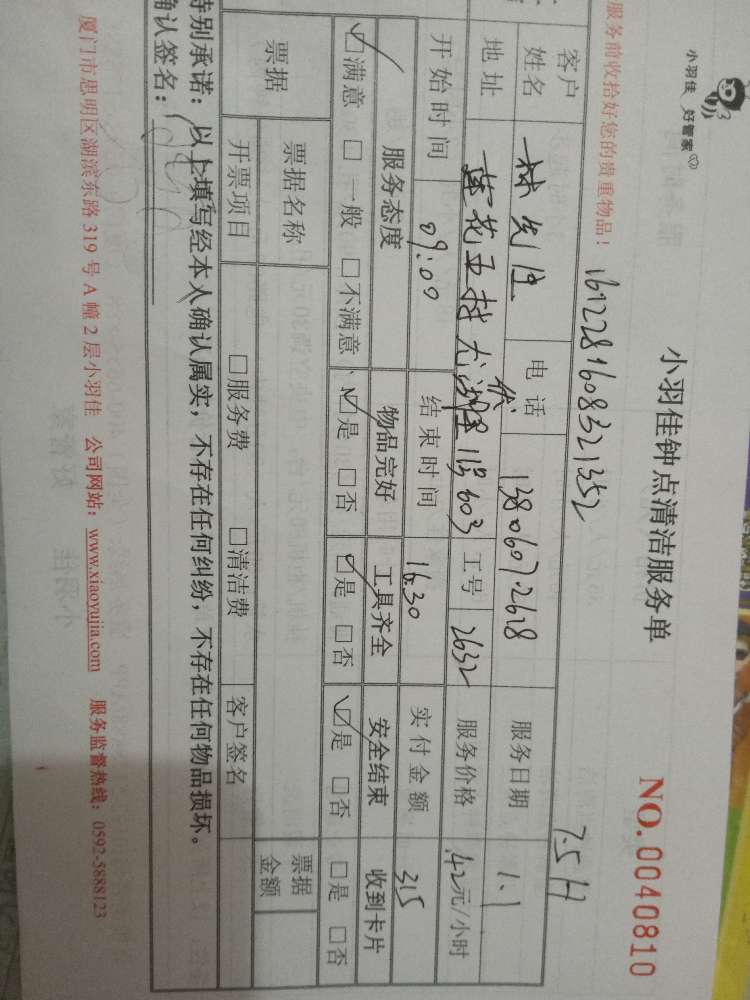 小羽佳 好管家
小羽佳钟点清洁服务单
NO.0040810
服务前收拾好您的贵重物品！
1612281608321352
7.5H
客户姓名 林先生 电话 13806072618 服务日期 1.1
地址 莲花五村龙 603 工号 2632 服务价格 42元/小时
开始时间 09:00 结束时间 16:30 实付金额 315
服务态度 物品完好 工具齐全 安全结束 收到卡片
☑满意 □一般 □不满意 ☑是 □否 ☑是 □否 ☑是 □否 □是 □否
票据 票据名称 票据金额
开票项目 □服务费 □清洁费 客户签名
特别承诺：以上填写经本人确认属实，不存在任何纠纷，不存在任何物品损坏。
确认签名：
厦门市思明区湖滨东路 319 号 A 幢 2 层小羽佳 公司网站：www.xiaoyujia.com 服务监督热线：0592-5888123